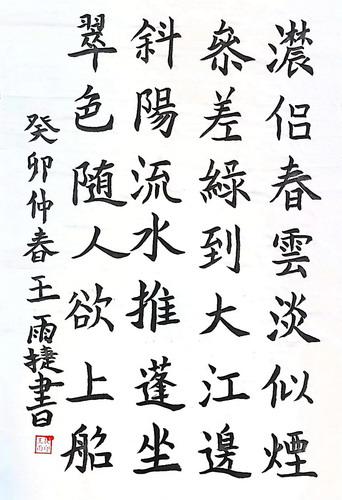 濃侣春雲淡似煙
參差綠到大江邊
斜陽流水推蓬坐
翠色随人欲上船
癸卯仲春王雨捷書